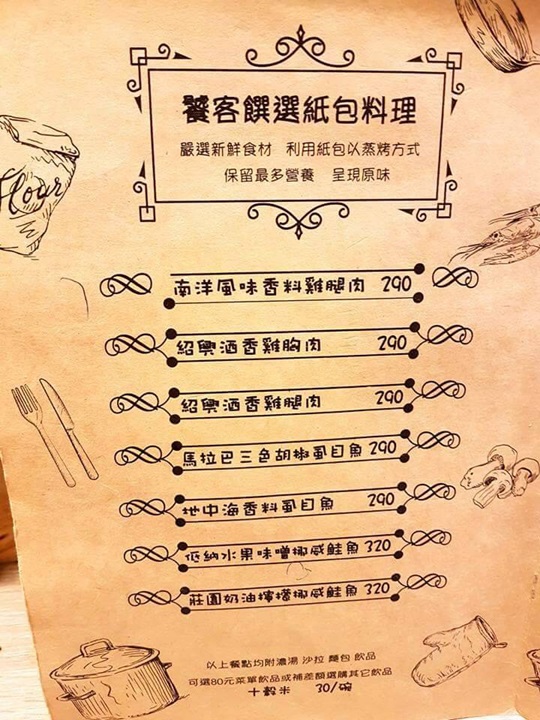 饕客饌選紙包料理
嚴選新鮮食材 利用紙包以蒸烤方式
保留最多營養 呈現原味
Flour
南洋風味香料雞腿肉 290
紹興酒香雞胸肉 290
紹興酒香雞腿肉 290
馬拉巴三色胡椒虱目魚 290
地中海香料虱目魚 290
低納水果味噌挪威鮭魚 320
莊園奶油檸檬挪威鮭魚 320
以上餐點均附濃湯 沙拉 麵包 飲品
可選80元菜單飲品或補差額選購其它飲品
十穀米 30/碗